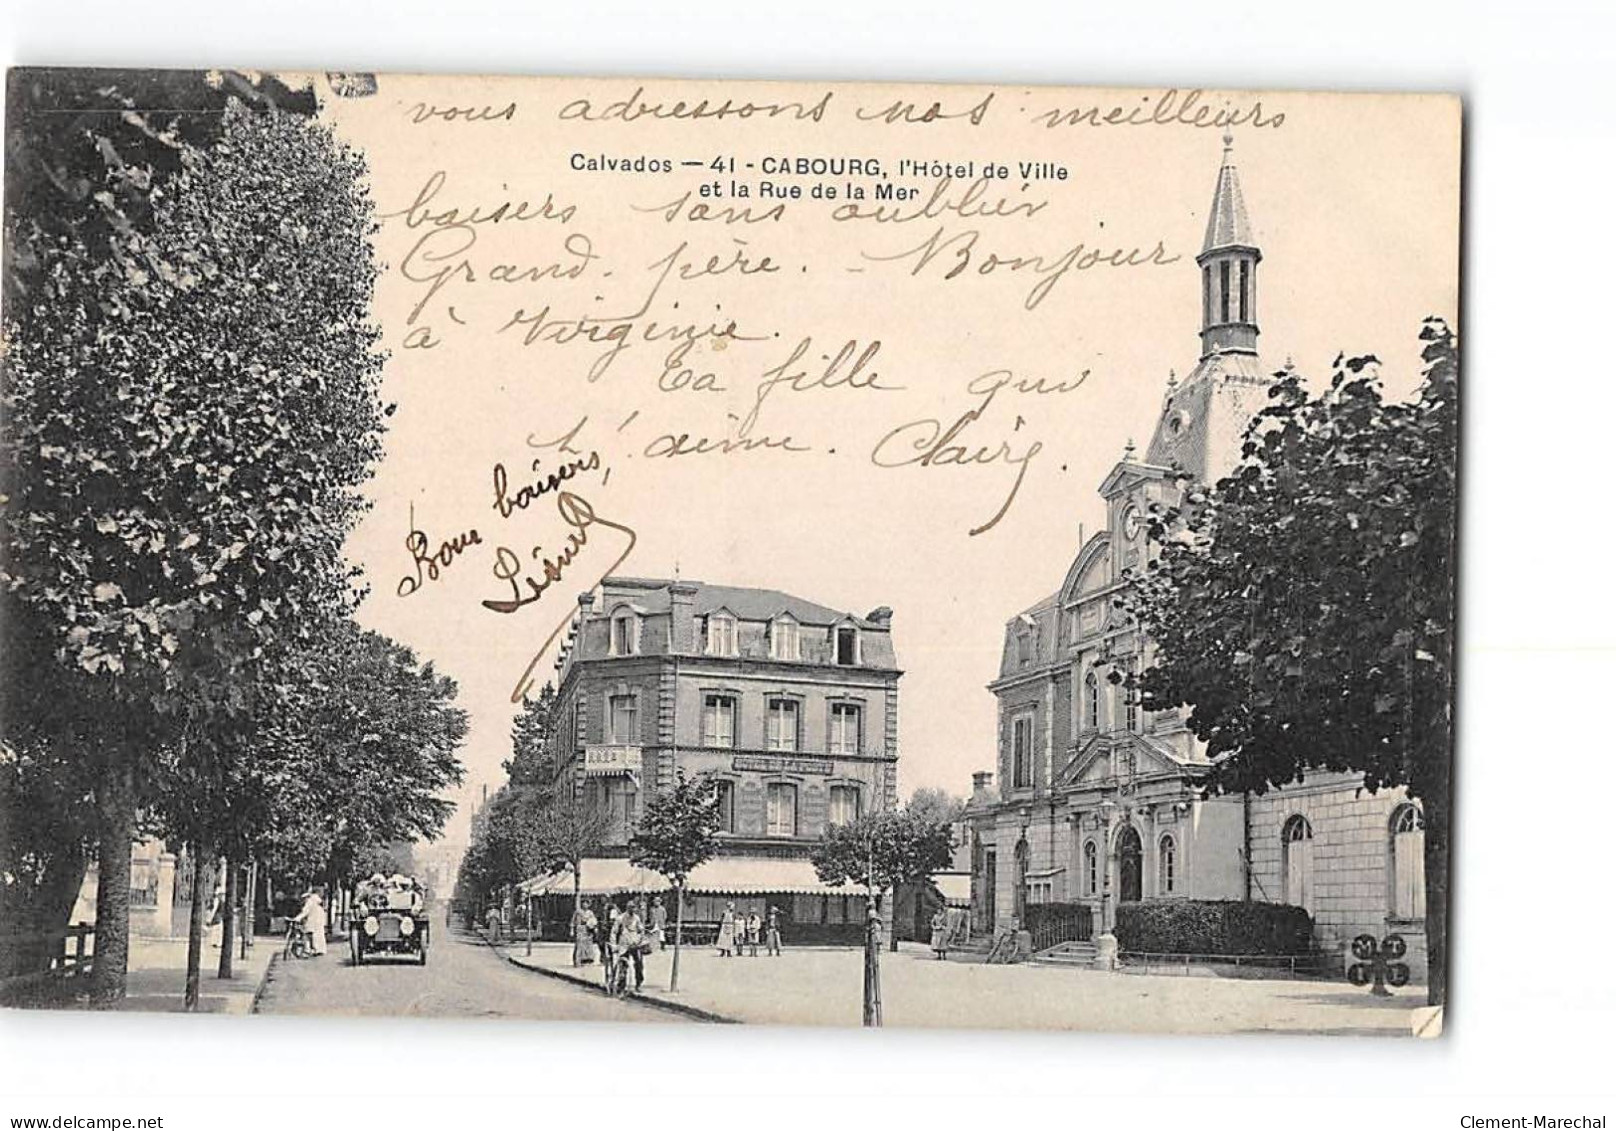 vous adressons nos meilleurs
Calvados — 41 - CABOURG, l'Hôtel de Ville
et la Rue de la Mer
baisers sans oublier
Grand-père. - Bonjour
à Virginie.
Ta fille qui
t'aime. Claire.
Bons baisers,
MTIL
delcampe.net
Clement-Marechal